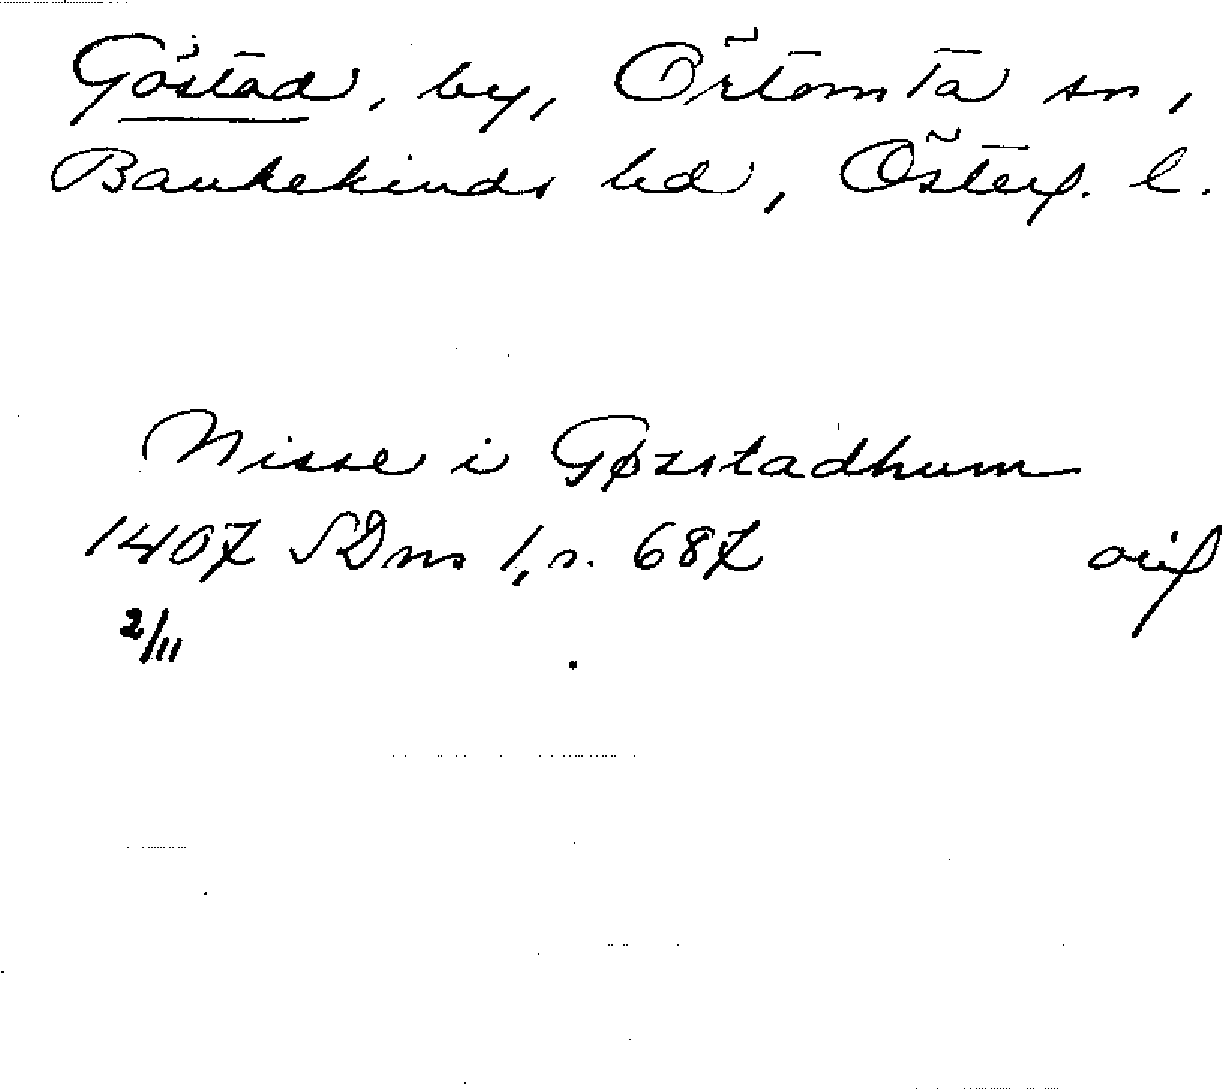 Göstad, by, Örtomta sn,
Bankekinds hd, Österg. l.
Nisse i Gøzstadhum
1407 SDns 1, s. 687 orig
2/11